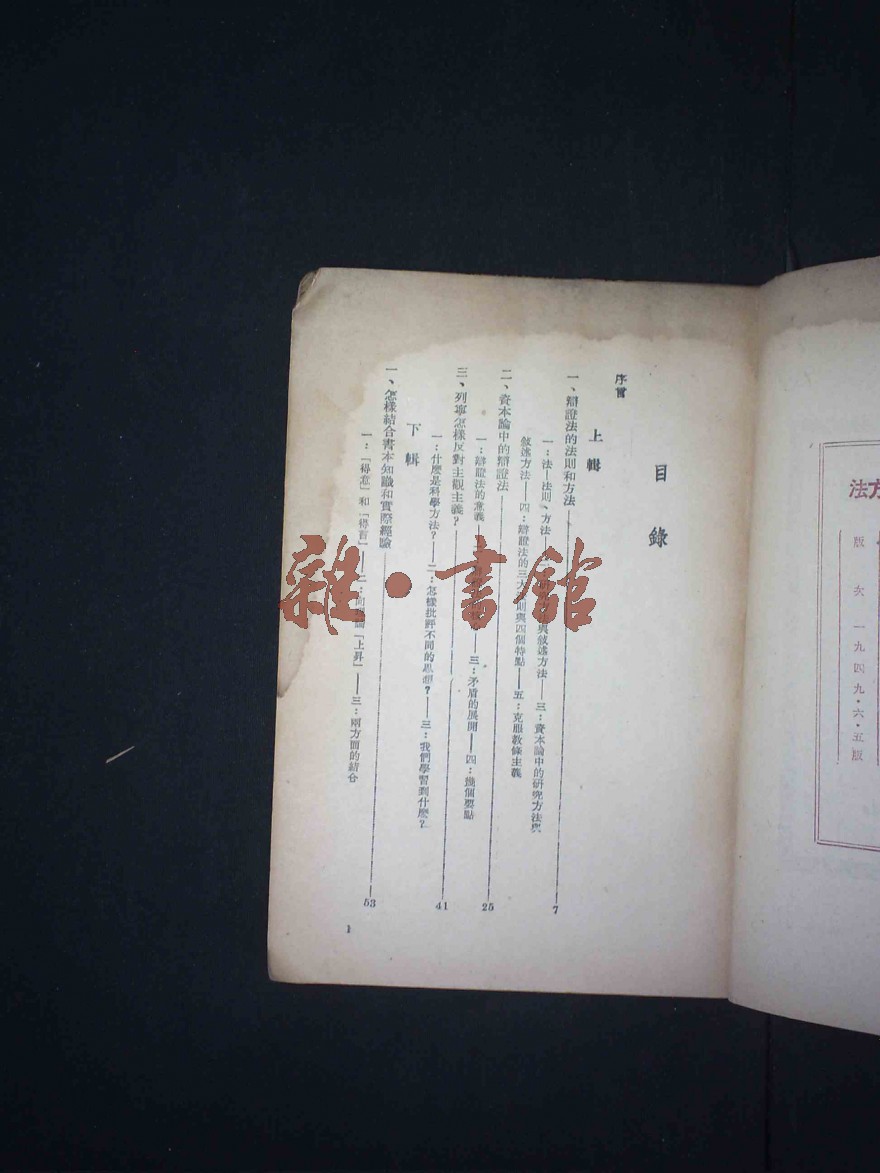 目錄
序言
上輯
一、辯證法的法則和方法 7
一：法——法則、方法 與敘述方法——三：資本論中的研究方法與
敘述方法——四：辯證法的三大 則與四個特點——五：克服教條主義
二、資本論中的辯證法 25
一：辯證法的意義 三：矛盾的展開——四：幾個要點
三、列寧怎樣反對主觀主義？ 41
一：什麽是科學方法？——二：怎樣批評不同的思想？——三：我們學習到什麽？
下輯
一、怎樣結合書本知識和實際經驗 53
一：「得意」和「得言」 二：向 論「上昇」——三：兩方面的結合
1
方法
版次一九四九·六·五版
雜·書館